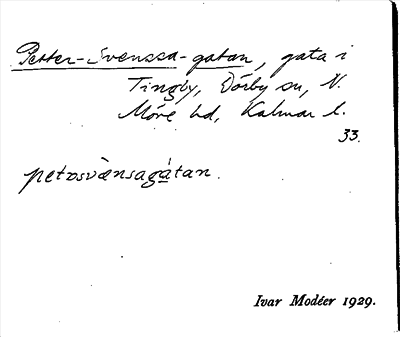 Petter-Svenssa-gatan, gata i
Tingby, Dörby sn, N.
Möre hd, Kalmar l.
33.
petəsvὰnsagátan.
Ivar Modéer 1929.